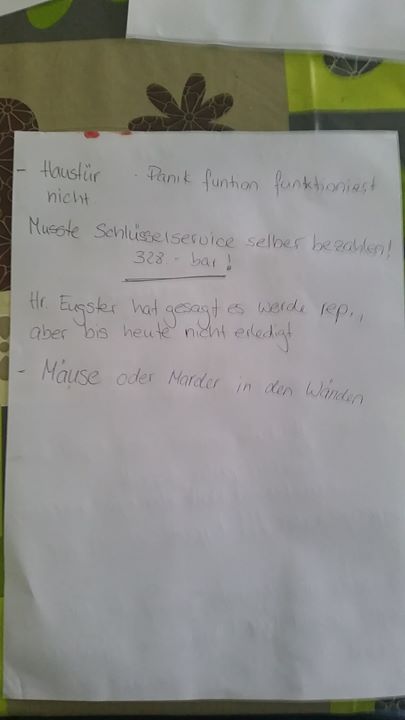 - Haustür - Panik funtion funktioniert
nicht
Musste Schlüsselservice selber bezahlen!
328.- bar!
Hr. Eugster hat gesagt es werde rep.,
aber bis heute nicht erledigt
- Mäuse oder Marder in den Wänden